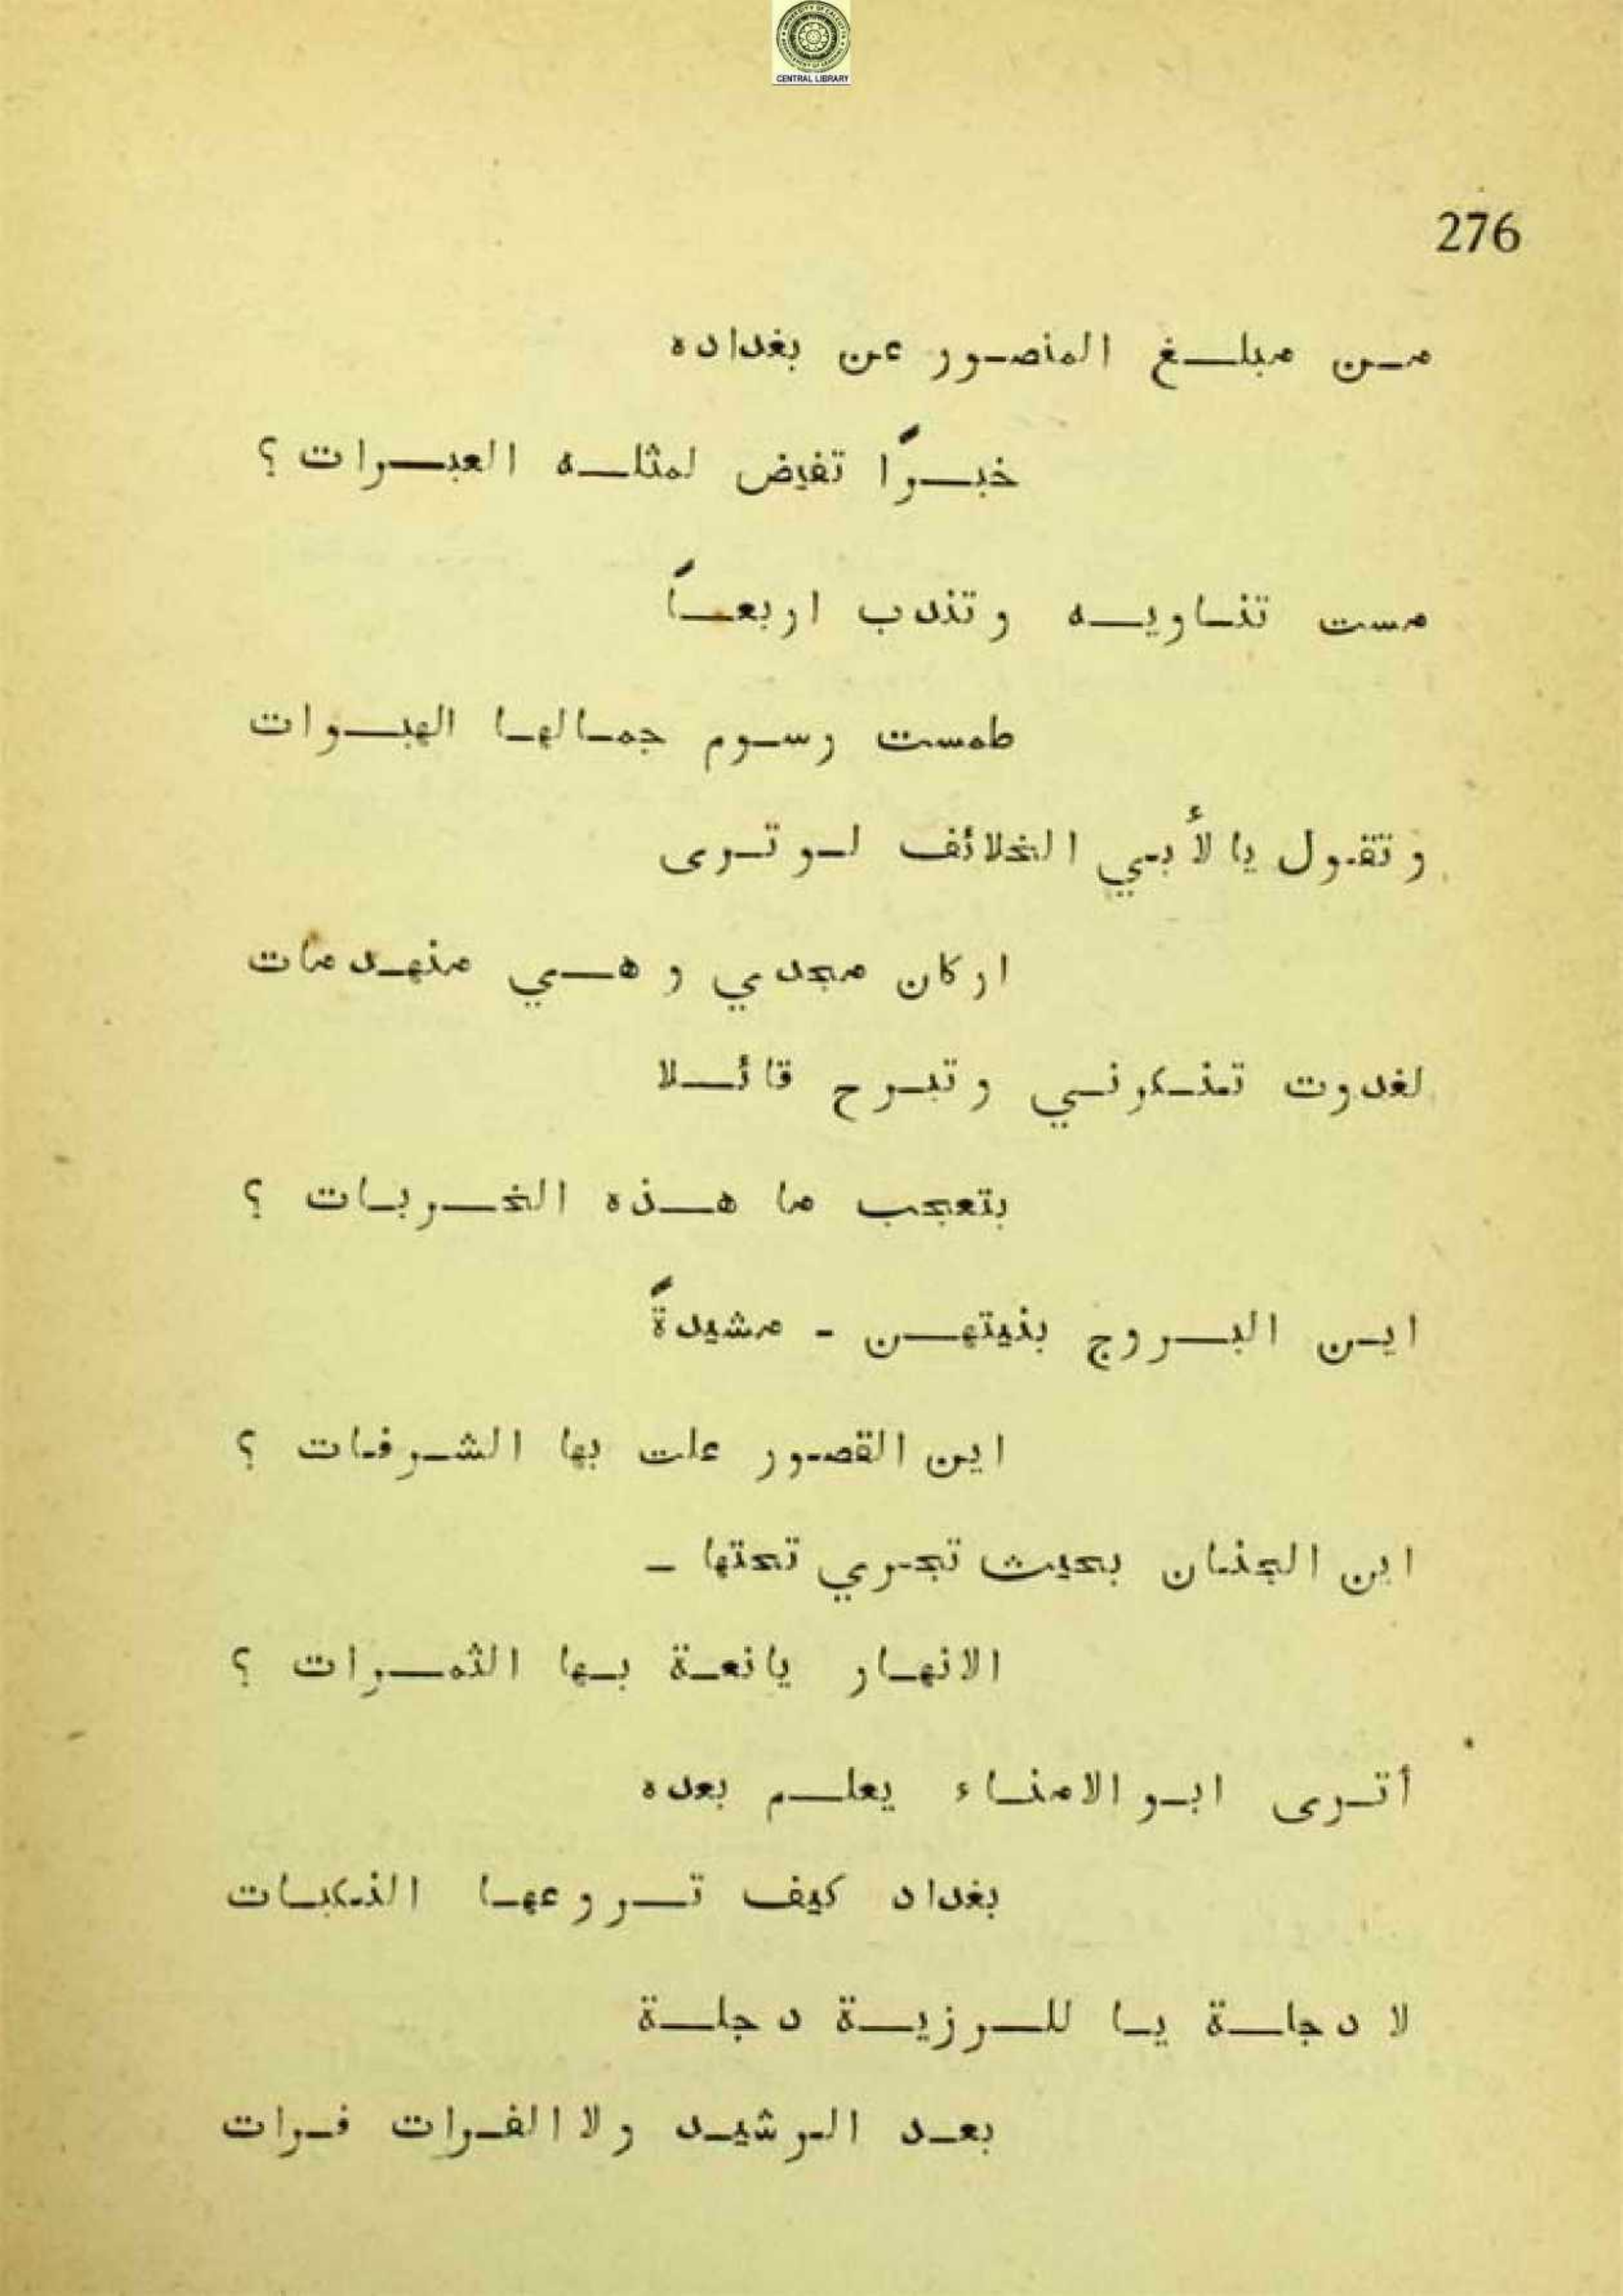 CENTRAL LIBRARY
276
مـن مبلـغ المنصور عن بغداده
خبـرًا تفيض لمثلـه العبـرات ؟
مست تنـاويـه وتندب اربعـاً
طمست رسـوم جمـالهـا الهبـوات
وتقول يا لأبي الخلائف لـو تـرى
اركان مجدي وهـي منهـدمات
لغدوت تنـكرنـي وتبـرح قائـلا
بتعجب ما هـذه الخـربـات ؟
ايـن البـروج بنيتهـن - مشيدةً
اين القصور علت بها الشـرفـات ؟
اين الجنـان بحيث تجـري تحتها -
الانهـار يانعـة بـها الثمـرات ؟
أتـرى ابـو الامنـاء يعلـم بعده
بغداد كيف تـروعهـا النكبـات
لا دجلـة يـا للـرزيـة دجلـة
بعـد الـرشيـد ولا الفـرات فـرات